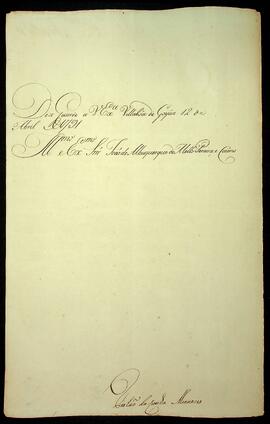 Deos Guarde a V.Exª Villa Boa de Goyáz 12 de
Abril de 1791
Illmo e Exmo Snr João de Albuquerque de Mello Pereira e Caceres
Tristão da Cunha Menezes